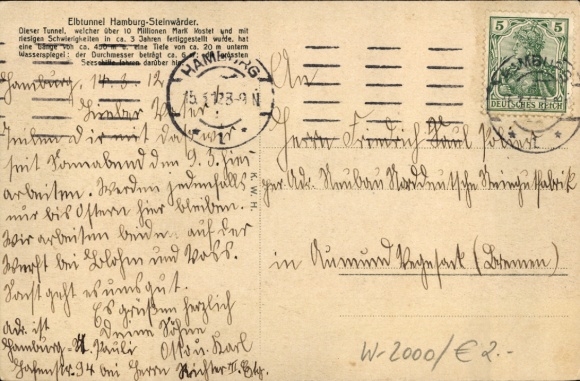 Elbtunnel Hamburg-Steinwärder.
Dieser Tunnel, welcher über 10 Millionen Mark kostet und mit
riesigen Schwierigkeiten in ca. 3 Jahren fertiggestellt wurde, hat
eine Länge von ca. 450 m u. eine Tiefe von ca. 20 m unterm
Wasserspiegel; der Durchmesser beträgt ca. 6 m. Die grössten
Seeschiffe fahren darüber hin.
Hamburg, 14.3.12
Lieber Vater!
Teilen dir mit das wir
seit Sonnabend den 9.3. hier
arbeiten. Werden jedenfalls
nur bis Ostern hier bleiben.
Wir arbeiten beide auf der
Werft bei Blohm und Voss.
Sonst geht es uns gut.
Es grüßen herzlich
Deine Söhne
Otto u. Karl
Adr. ist
Hamburg-St. Pauli
Hafenstr. 94 bei Herrn Richter II. Etg.
K. W. H.
HAMBURG
15.3.12 8-9 N
* 1 *
HAMBURG
5 5
DEUTSCHES REICH
An
Herrn Friedrich Paul
per Adr. Neubau Norddeutsche Steingutfabrik
in Aumund Vegesack (Bremen)
W-2000/€ 2.-